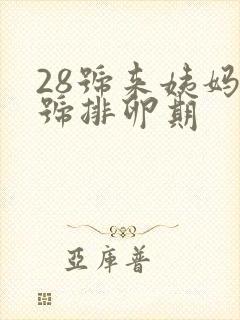 28號來姨媽
號排卵期
亞庫普